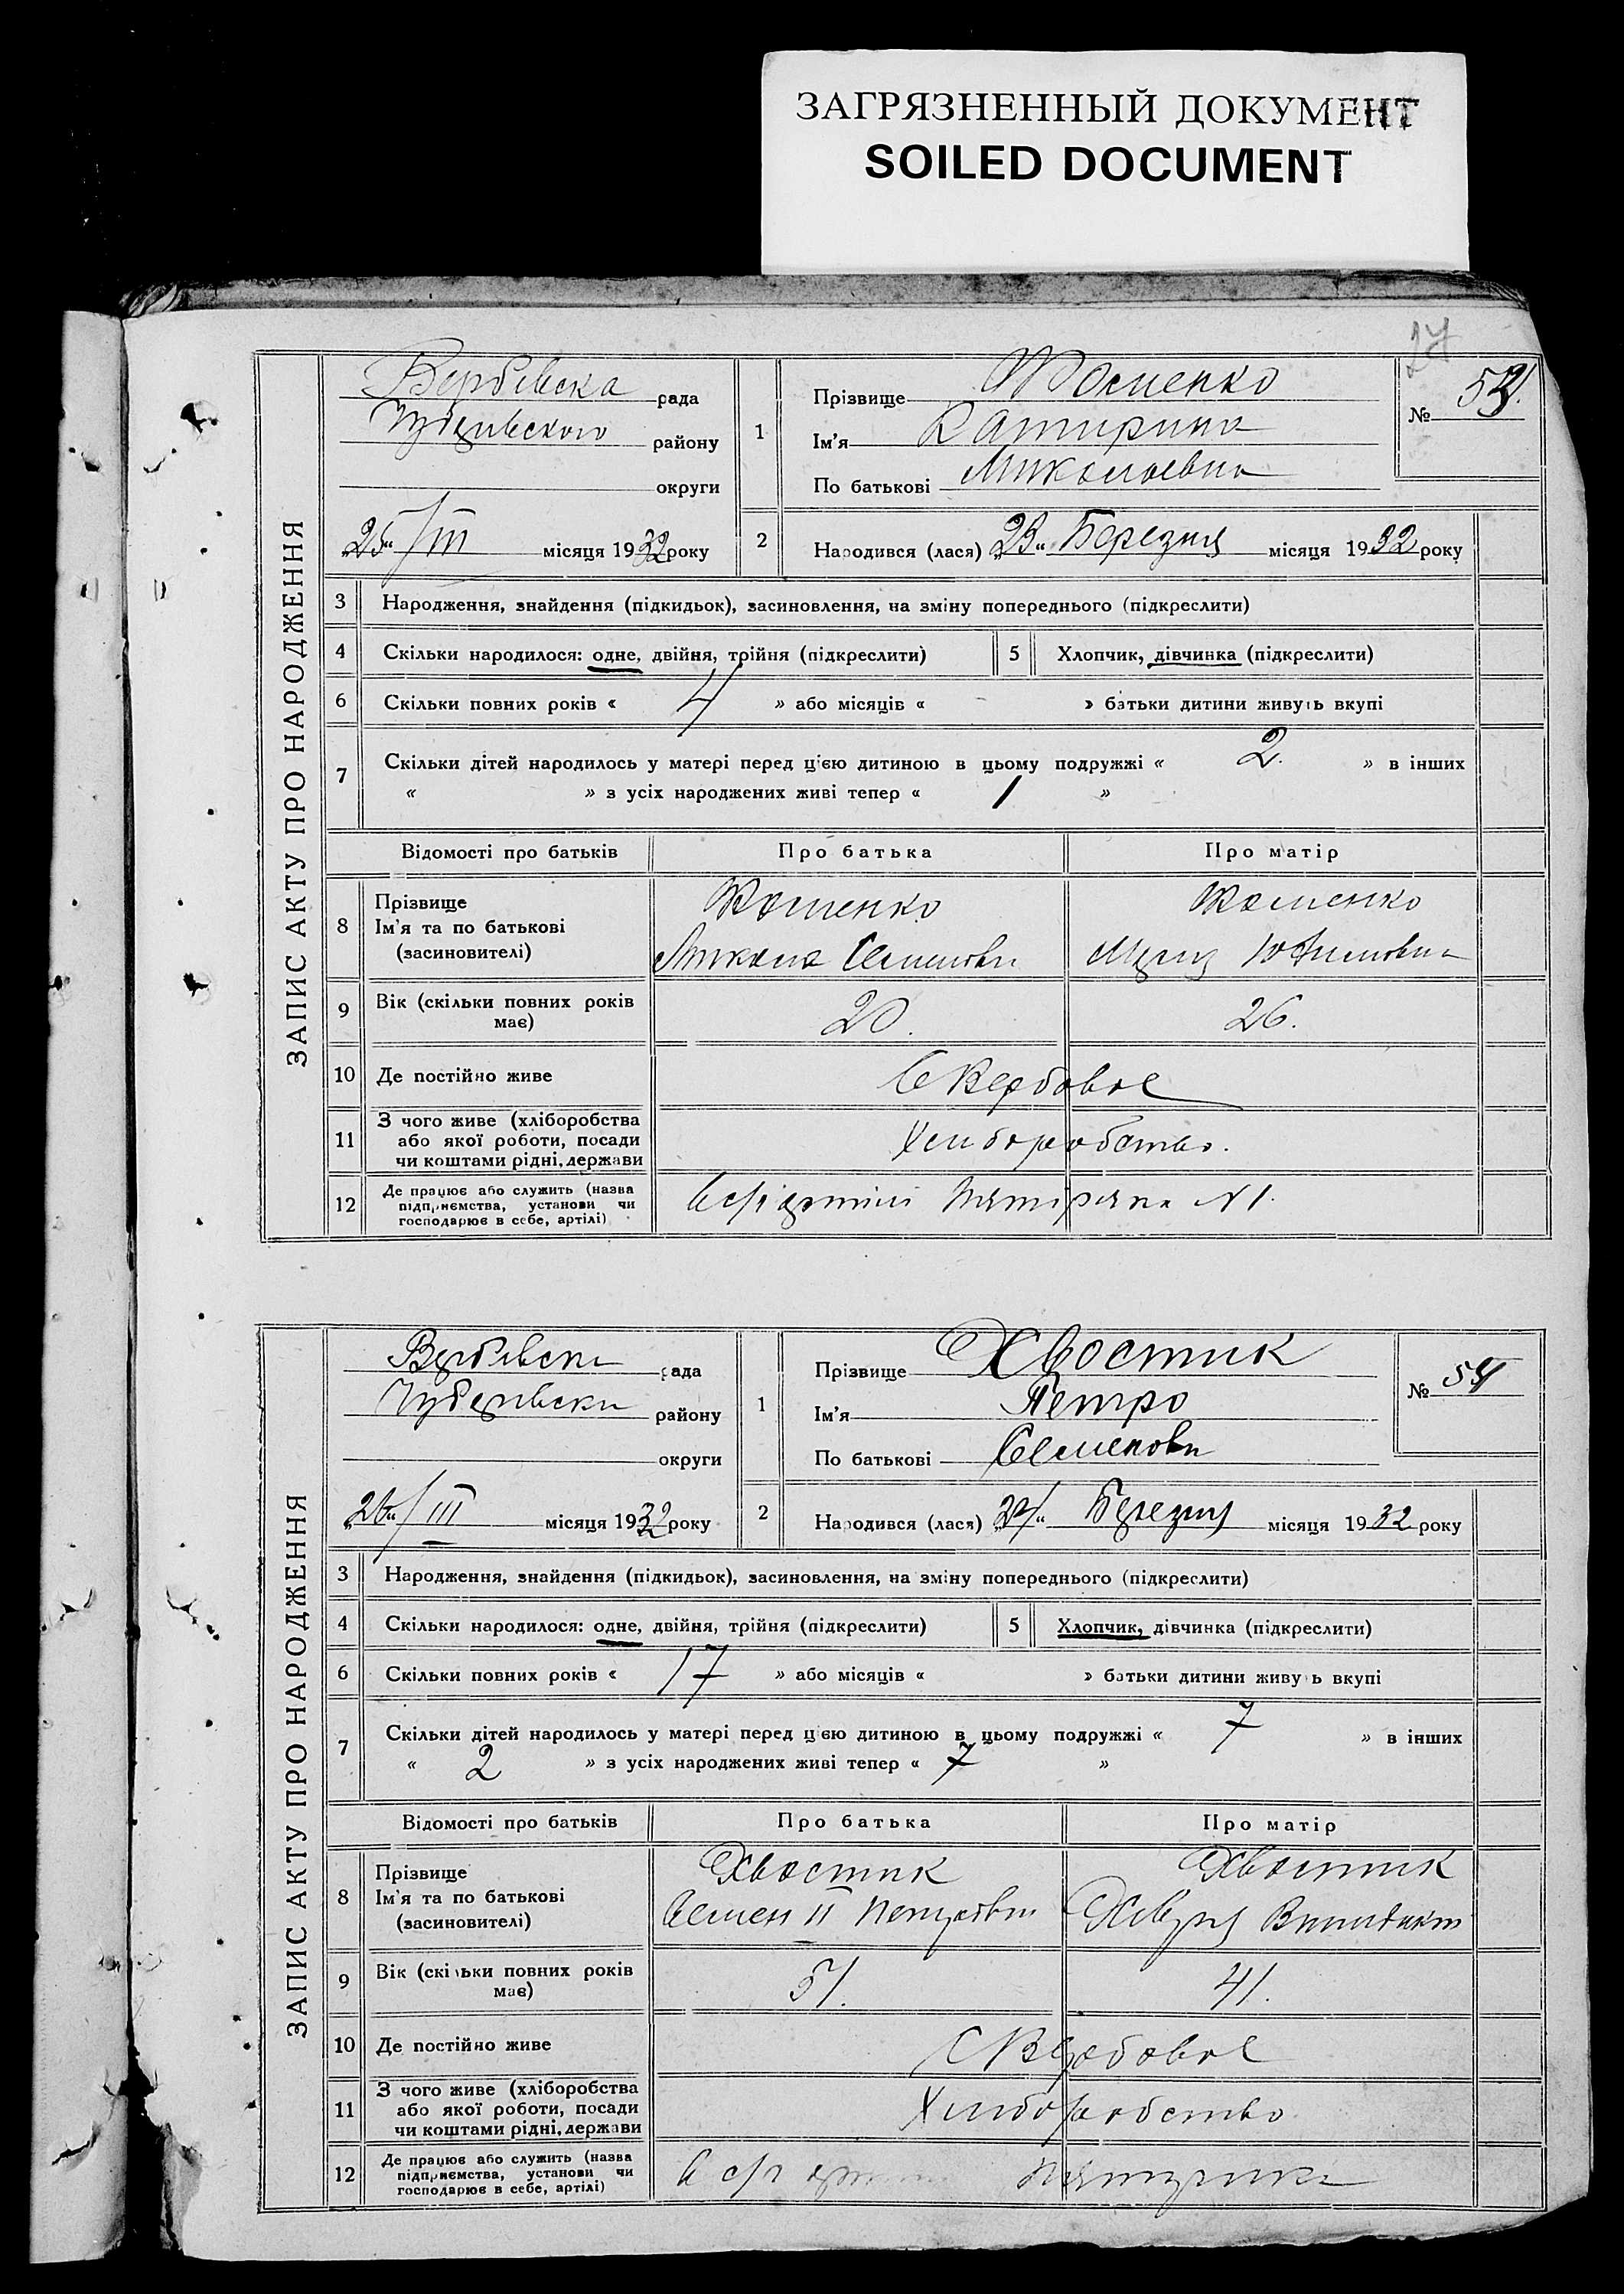 ЗАГРЯЗНЕННЫЙ ДОКУМЕНТ
SOILED DOCUMENT
27
ЗАПИС АКТУ ПРО НАРОДЖЕННЯ
Вербівска рада
району
округи
„25“/III місяця 1932 року
1
Прізвище
Ім'я Катирина
По батькові Миколаевна
№ 53.
2
Народився (лася) „23“ Березня місяця 1932 року
3 Народження, знайдення (підкидьок), засиновлення, на зміну попереднього (підкреслити)
4 Скільки народилося: одне, двійня, трійня (підкреслити)
5 Хлопчик, дівчинка (підкреслити)
6 Скільки повних років « 4 » або місяців « - » батьки дитини живуть вкупі
7 Скільки дітей народилось у матері перед цією дитиною в цьому подружжі « 2. » в інших
« » з усіх народжених живі тепер « 1 »
Відомості про батьків Про батька Про матір
8 Прізвище
Ім'я та по батькові
(засиновителі)
Микола Семенови
9 Вік (скільки повних років
має)
20. 26.
10 Де постійно живе С Вербовое
11 З чого живе (хліборобства
або якої роботи, посади
чи коштами рідні, держави
Хлиборобство.
12 Де працює або служить (назва
підприємства, установи чи
господарює в себе, артілі)
В с/г артилі Пятирична N 1.
ЗАПИС АКТУ ПРО НАРОДЖЕННЯ
Вербівска рада
району
округи
„26“/III місяця 1932 року
1
Прізвище Хвостик
Ім'я Петро
По батькові Семенови
№ 54
2
Народився (лася) „24“ Березня місяця 1932 року
3 Народження, знайдення (підкидьок), засиновлення, на зміну попереднього (підкреслити)
4 Скільки народилося: одне, двійня, трійня (підкреслити)
5 Хлопчик, дівчинка (підкреслити)
6 Скільки повних років « 17 » або місяців « » батьки дитини живуть вкупі
7 Скільки дітей народилось у матері перед цією дитиною в цьому подружжі « 7 » в інших
« 2 » з усіх народжених живі тепер « 7 »
Відомості про батьків Про батька Про матір
8 Прізвище
Ім'я та по батькові
(засиновителі)
Хвостик Хвостик
Семен II Петрови
9 Вік (скільки повних років
має)
51. 41.
10 Де постійно живе С Вербовое
11 З чого живе (хліборобства
або якої роботи, посади
чи коштами рідні, держави
Хлиборобство
12 Де працює або служить (назва
підприємства, установи чи
господарює в себе, артілі)
В с/г